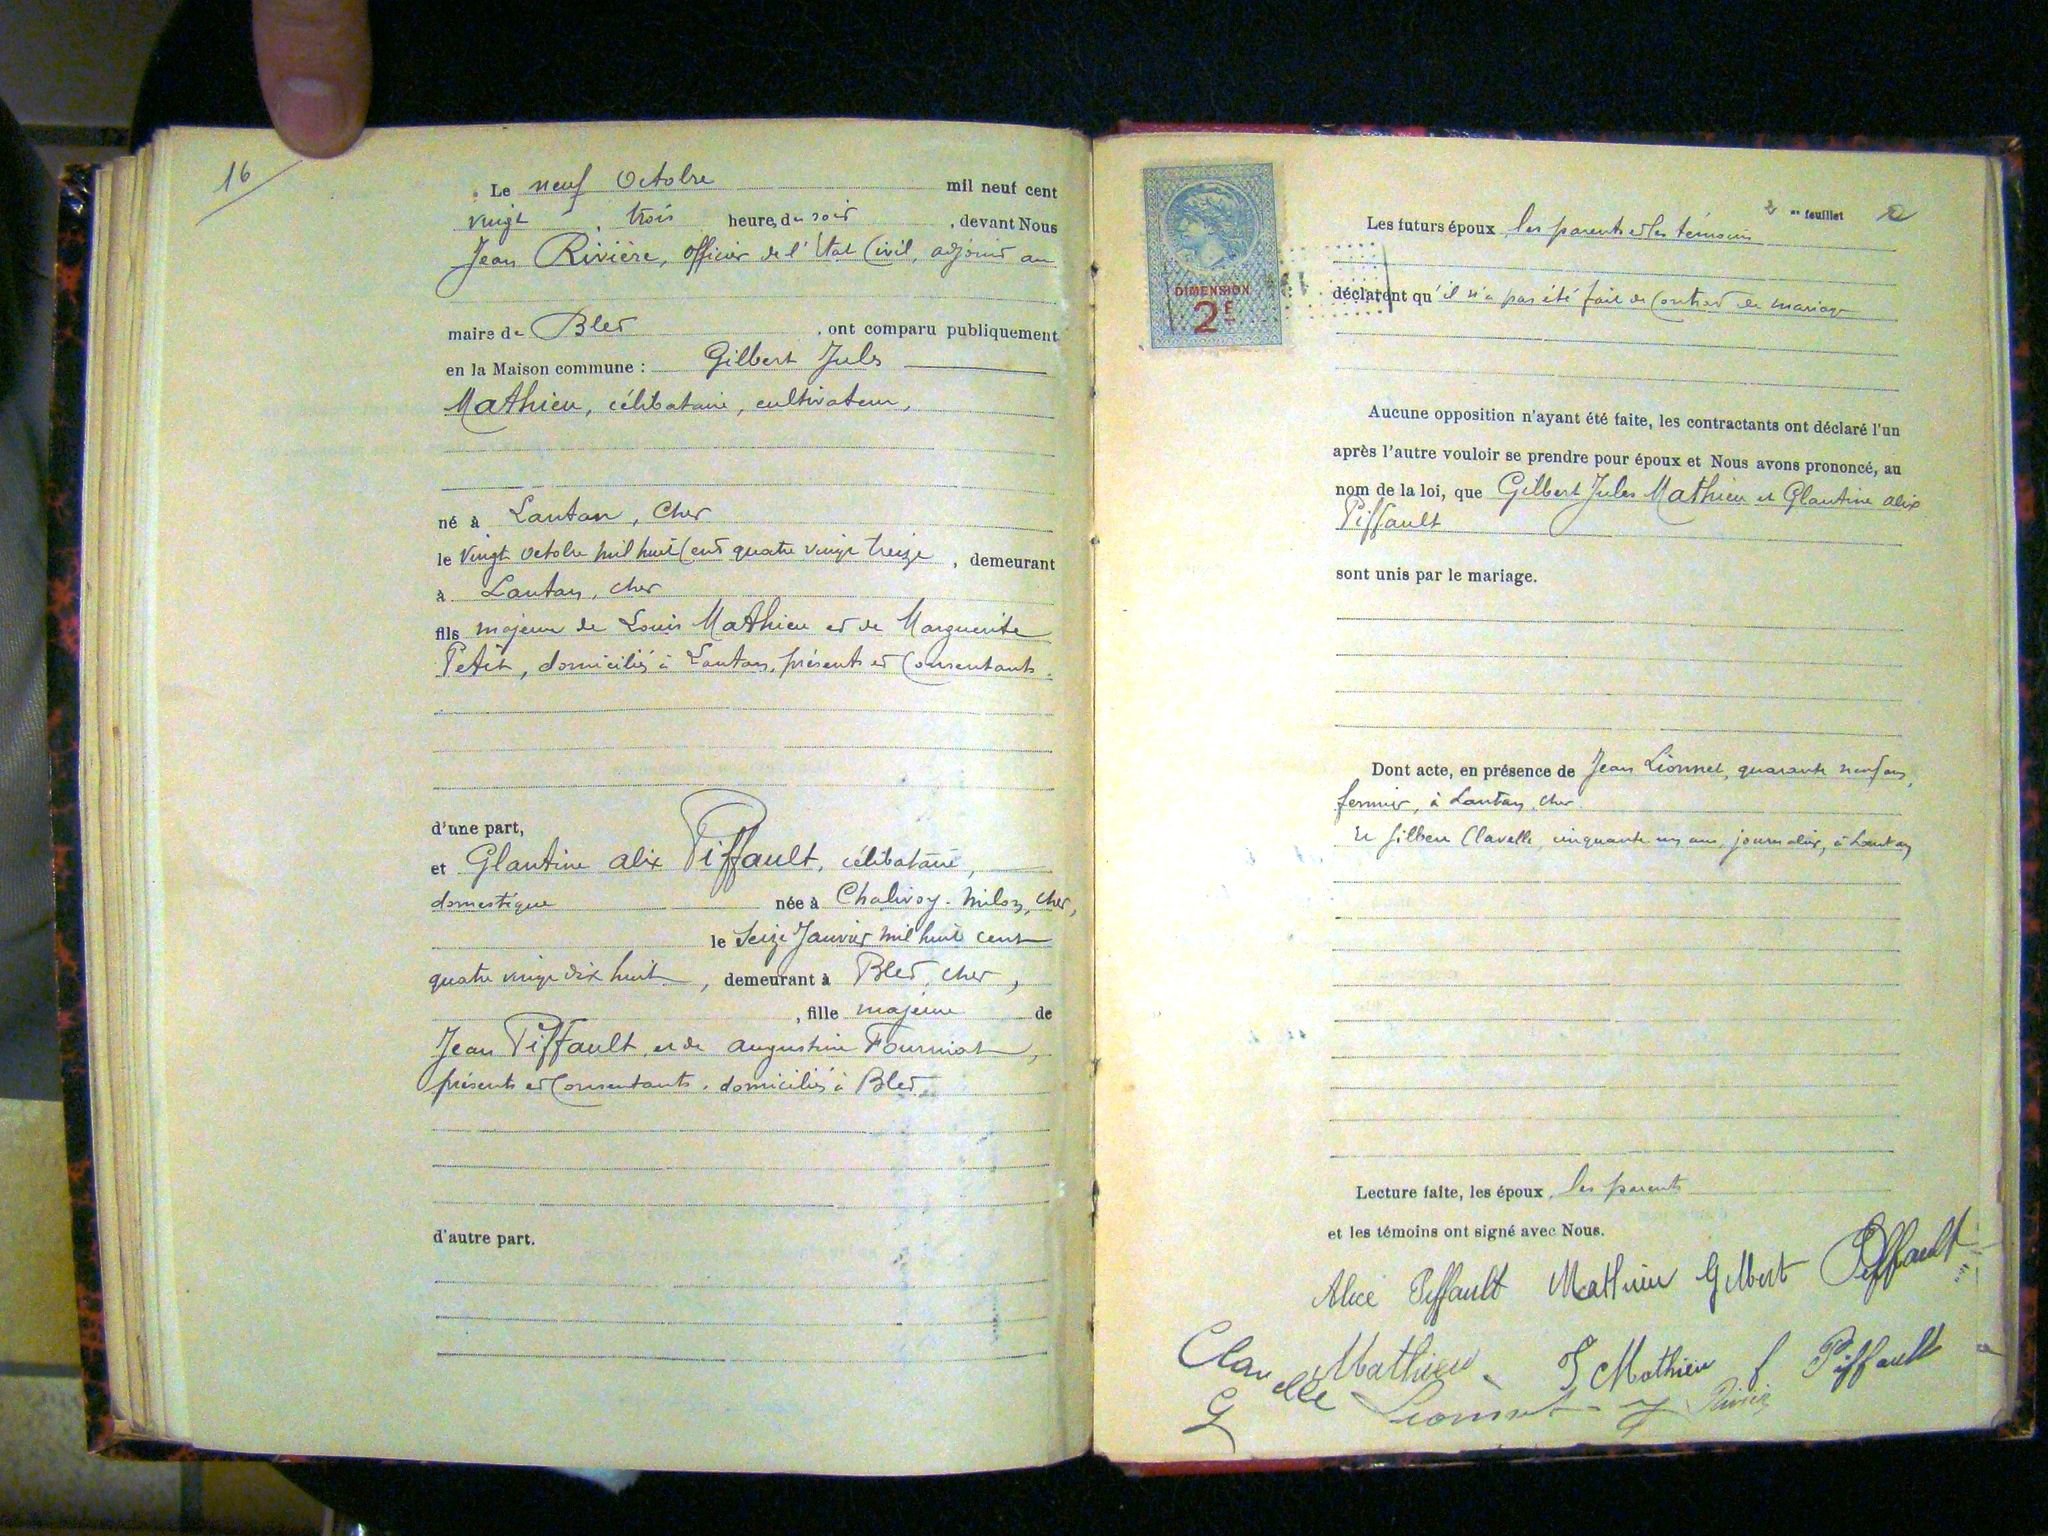 16
Le neuf Octobre mil neuf cent
vingt, trois heure, du soir, devant Nous
Jean Rivière, officier de l'Etat Civil, adjoint au
maire de Blet, ont comparu publiquement
en la Maison commune : Gilbert Jules
Mathieu, célibataire, cultivateur,
né à Lantan, Cher
le vingt octobre mil huit cent quatre vingt treize, demeurant
à Lantan, Cher
fils majeur de Louis Mathieu et de Marguerite
Petit, domiciliés à Lantan, présents et consentants.
d'une part,
et Glantine alix Piffault, célibataire,
domestique née à Chalivoy-Milon, Cher,
le Seize Janvier mil huit cent
quatre vingt dix huit, demeurant à Blet, Cher,
, fille majeure de
Jean Piffault et de Augustine Fourniat,
présents et consentants, domiciliés à Blet.
d'autre part.
DIMENSION
2F
2 me feuillet
Les futurs époux, les parents et les témoins
déclarent qu'il n'a pas été fait de contrat de mariage
Aucune opposition n'ayant été faite, les contractants ont déclaré l'un
après l'autre vouloir se prendre pour époux et Nous avons prononcé, au
nom de la loi, que Gilbert Jules Mathieu et Glantine alix
Piffault
sont unis par le mariage.
Dont acte, en présence de Jean Lionnet, quarante neuf ans,
fermier, à Lantan, Cher
et Gilbert Clavelle, cinquante un ans, journalier, à Lantan
Lecture faite, les époux, les parents
et les témoins ont signé avec Nous.
Alice Piffault Mathieu Gilbert Piffault
Clavelle Mathieu Mathieu f Piffault
G Lionnet J Rivière